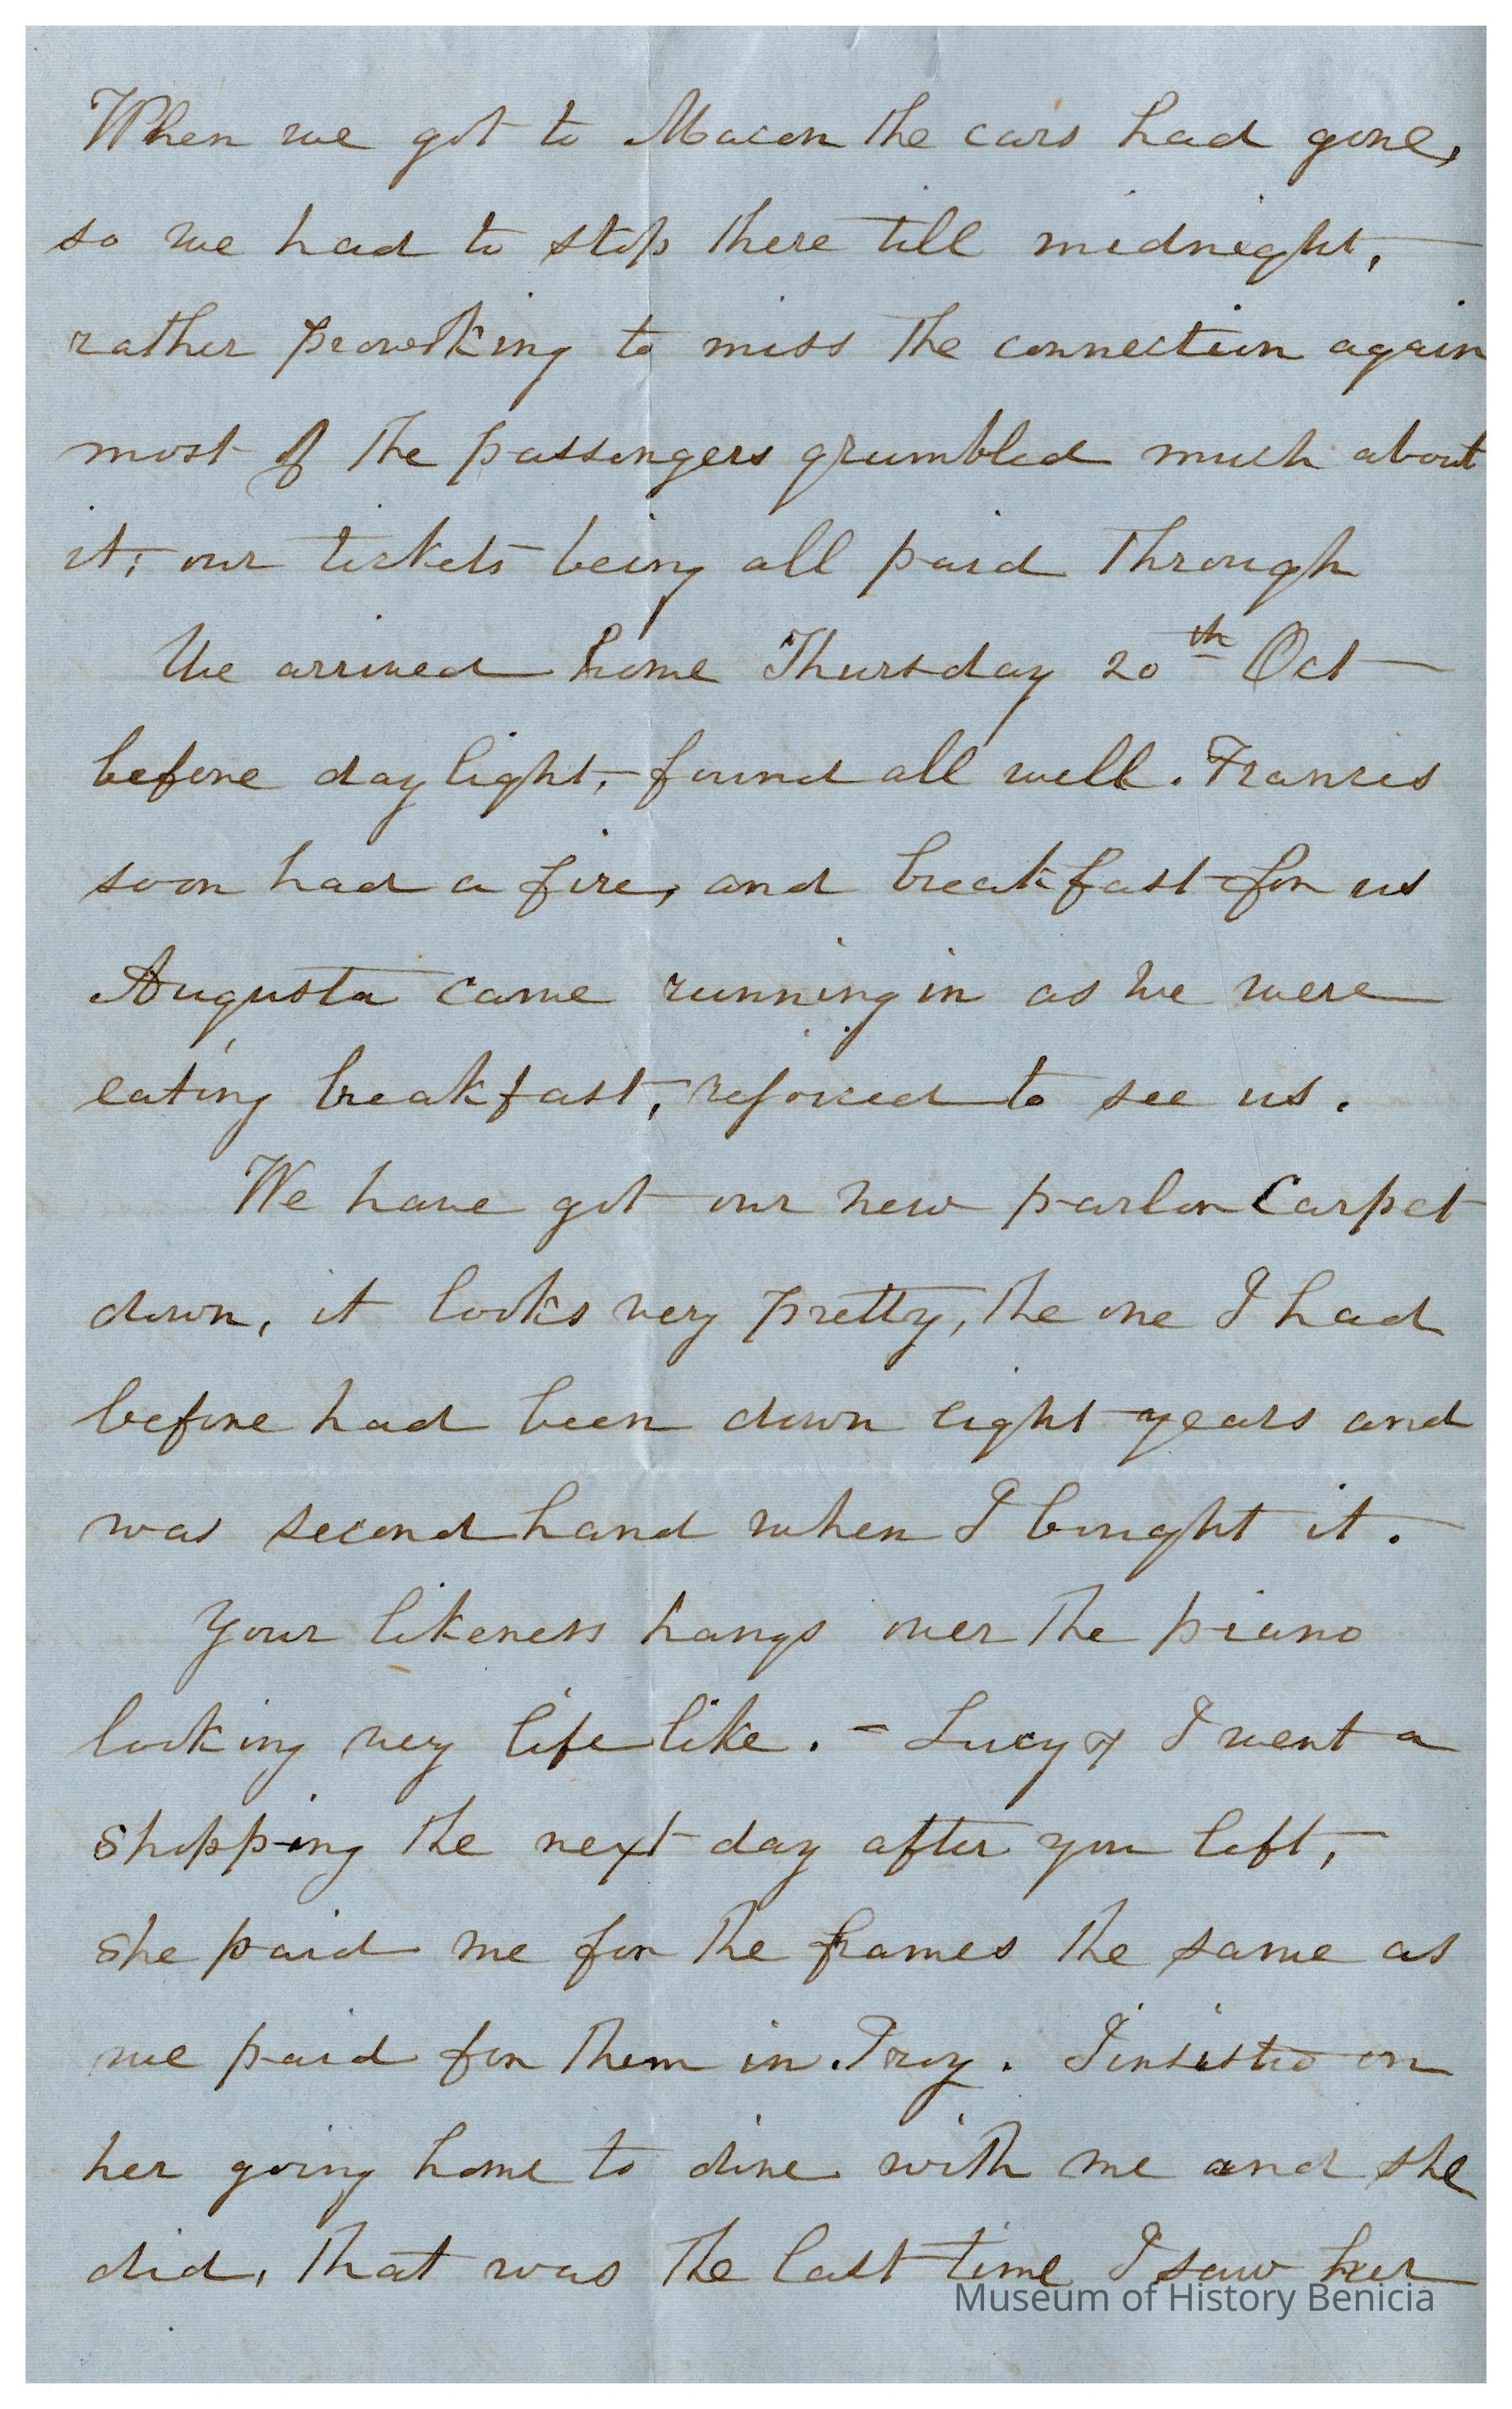 When we got to Macon the cars had gone,
so we had to stop there till midnight,
rather provoking to miss the connection again
most of the passengers grumbled much about
it, our tickets being all paid through
We arrived home Thursday 20th Oct
before day light, found all well. Francis
soon had a fire, and breakfast for us
Augusta came running in as we were
eating breakfast, rejoiced to see us.
We have got our new parlor Carpet
down, it looks very pretty, the one I had
before had been down eight years and
was second hand when I bought it.
Your likeness hangs over the piano
looking very life like. - Lucy & I went a
shopping the next day after you left,
she paid me for the frames the same as
we paid for them in Troy. I insisted on
her going home to dine with me and she
did, that was the last time I saw her
Museum of History Benicia